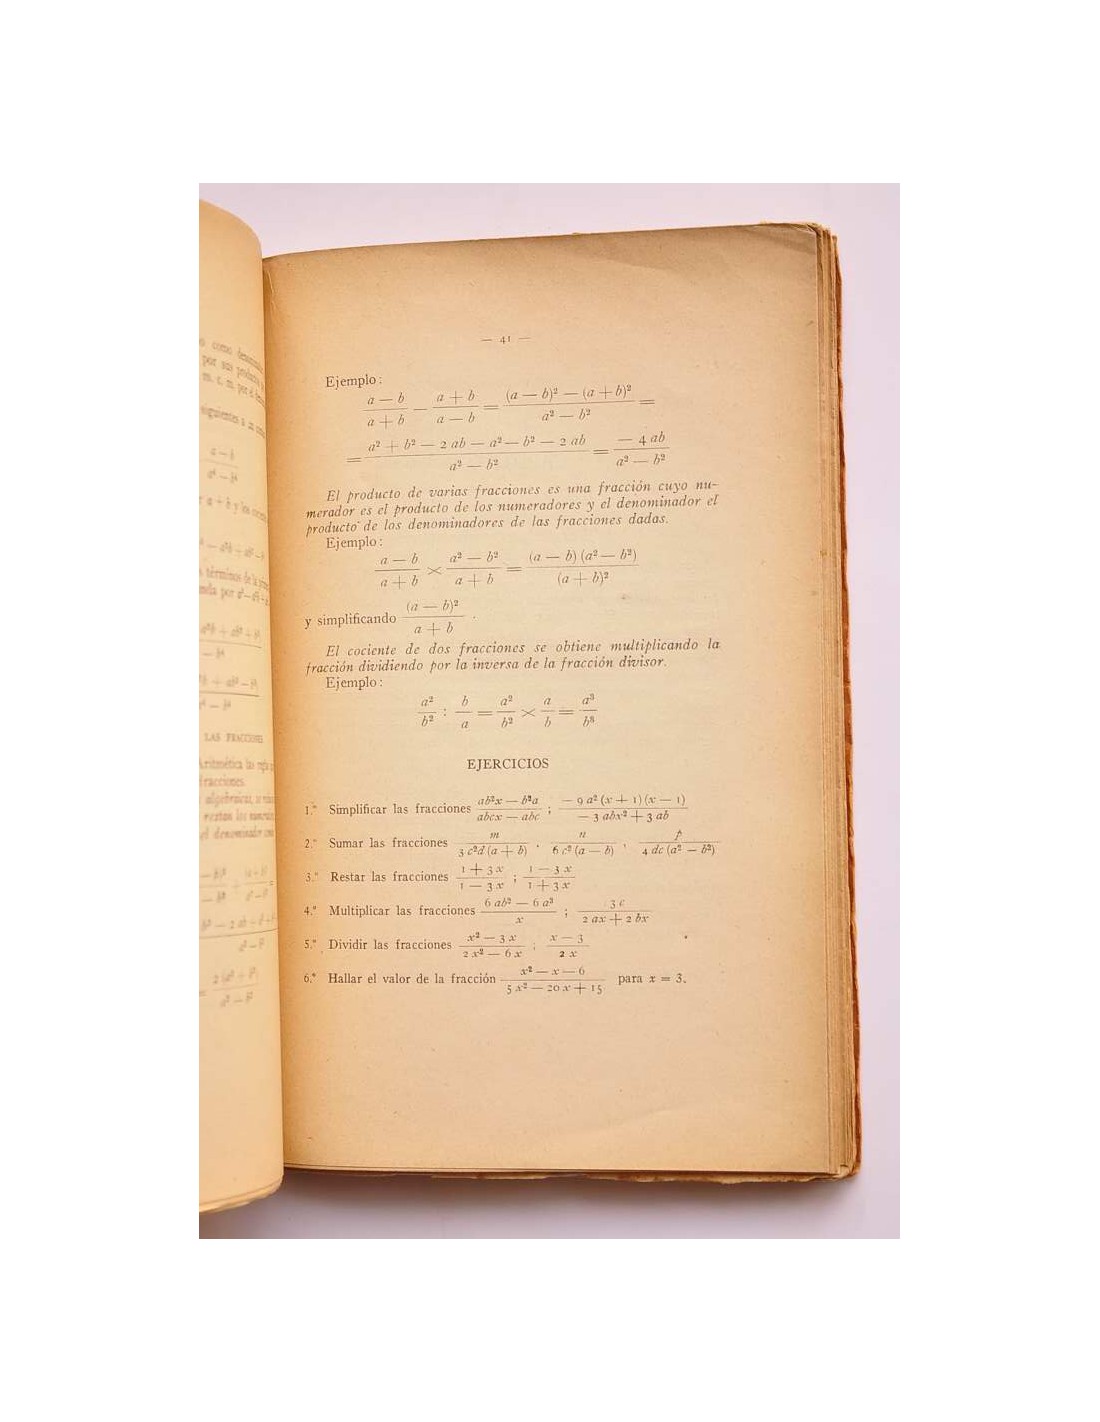 — 41 —
Ejemplo:
a — b / a + b — a + b / a — b = (a — b)² — (a + b)² / a² — b² =
= a² + b² — 2 ab — a² — b² — 2 ab / a² — b² = — 4 ab / a² — b²
El producto de varias fracciones es una fracción cuyo nu-
merador es el producto de los numeradores y el denominador el
producto de los denominadores de las fracciones dadas.
Ejemplo:
a — b / a + b × a² — b² / a + b = (a — b) (a² — b²) / (a + b)²
y simplificando (a — b)² / a + b .
El cociente de dos fracciones se obtiene multiplicando la
fracción dividiendo por la inversa de la fracción divisor.
Ejemplo:
a² / b² : b / a = a² / b² × a / b = a³ / b³
EJERCICIOS
1.º Simplificar las fracciones ab²x — b²a / abcx — abc ; — 9 a² (x + 1) (x — 1) / — 3 abx² + 3 ab
2.º Sumar las fracciones m / 3 c²d (a + b) , n / 6 c² (a — b) , p / 4 dc (a² — b²)
3.º Restar las fracciones 1 + 3 x / 1 — 3 x ; 1 — 3 x / 1 + 3 x
4.º Multiplicar las fracciones 6 ab² — 6 a³ / x ; 3 c / 2 ax + 2 bx
5.º Dividir las fracciones x² — 3 x / 2 x² — 6 x ; x — 3 / 2 x
6.º Hallar el valor de la fracción x² — x — 6 / 5 x² — 20 x + 15 para x = 3.
LAS FRACCIONES